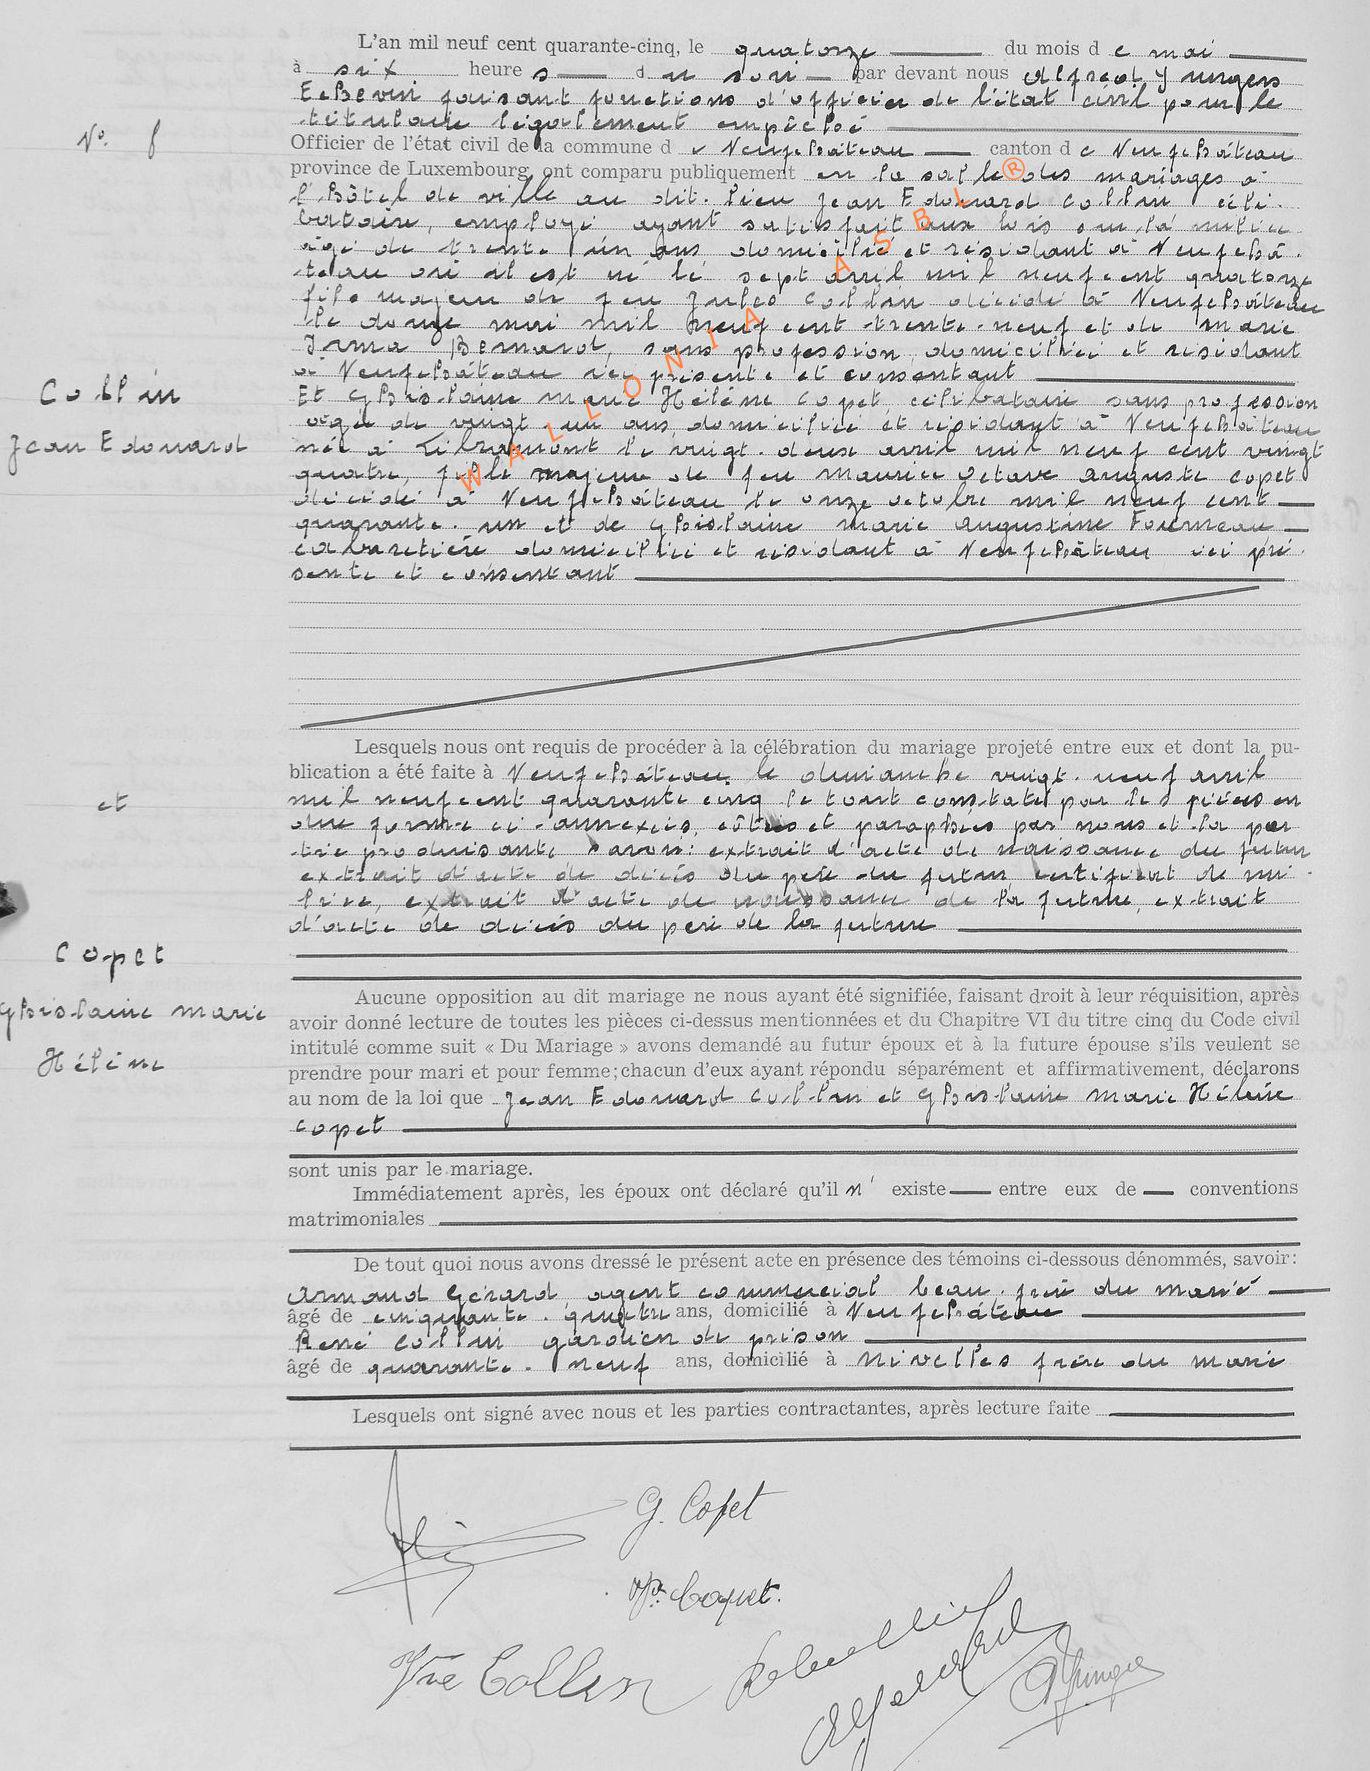 L'an mil neuf cent quarante-cinq, le quatorze du mois de mai
à six heures du soir par devant nous Alfred Jungers
Echevin faisant fonctions d'officier de l'état civil pour le
titulaire légalement empêché
N°. 8
Officier de l'état civil de la commune de Neufchâteau canton de Neufchâteau
province de Luxembourg, ont comparu publiquement en la salle des mariages à
l'hôtel de ville au dit. lieu Jean Edouard Collin céli.
bataire, employé ayant satisfait aux lois sur la milice
âgé de trente un ans, domicilié et résidant à Neufchâ.
teau où il est né le sept avril mil neuf cent quatorze
fils majeur de feu Jules Collin décédé à Neufchâteau
le douze mai mil neuf cent trente-neuf et de Marie
Irma Bernard, sans profession, domiciliée et résidant
à Neufchâteau ici présente et consentant
Et Ghislaine Marie Hélène Copet, célibataire sans profession
âgée de vingt un ans domiciliée et résidant à Neufchâteau
née à Libramont le vingt. deux avril mil neuf cent vingt
quatre, fille majeure de feu Maurice Octave Auguste Copet
décédé à Neufchâteau le onze octobre mil neuf cent
quarante. un et de Ghislaine Marie Augustine Fourneau
cabaretière domiciliée et résidant à Neufchâteau ici pré.
sente et consentant
Collin
Jean Edouard
WALLONIA ASBL ®
Lesquels nous ont requis de procéder à la célébration du mariage projeté entre eux et dont la pu-
blication a été faite à Neufchâteau le dimanche vingt. neuf avril
mil neuf cent quarante cinq le tout constaté par les pièces en
due forme ci-annexées, côtées et paraphées par nous et la par
tie produisante savoir: extrait d'acte de naissance du futur
extrait d'acte de décès du père du futur, certificat de mi
lice, extrait d'acte de naissance de la future, extrait
d'acte de décès du père de la future
et
Copet
Ghislaine Marie
Hélène
Aucune opposition au dit mariage ne nous ayant été signifiée, faisant droit à leur réquisition, après
avoir donné lecture de toutes les pièces ci-dessus mentionnées et du Chapitre VI du titre cinq du Code civil
intitulé comme suit « Du Mariage » avons demandé au futur époux et à la future épouse s'ils veulent se
prendre pour mari et pour femme; chacun d'eux ayant répondu séparément et affirmativement, déclarons
au nom de la loi que Jean Edouard Collin et Ghislaine Marie Hélène
Copet
sont unis par le mariage.
Immédiatement après, les époux ont déclaré qu'il n' existe entre eux de conventions
matrimoniales
De tout quoi nous avons dressé le présent acte en présence des témoins ci-dessous dénommés, savoir:
Armand Gérard, agent commercial beau. frère du marié
âgé de cinquante. quatre ans, domicilié à Neufchâteau
René Collin gardien de prison
âgé de quarante. neuf ans, domicilié à Nivelles frère du marié
Lesquels ont signé avec nous et les parties contractantes, après lecture faite
G. Copet
Vve Copet.
Vve Collin
AGérard
AJungers